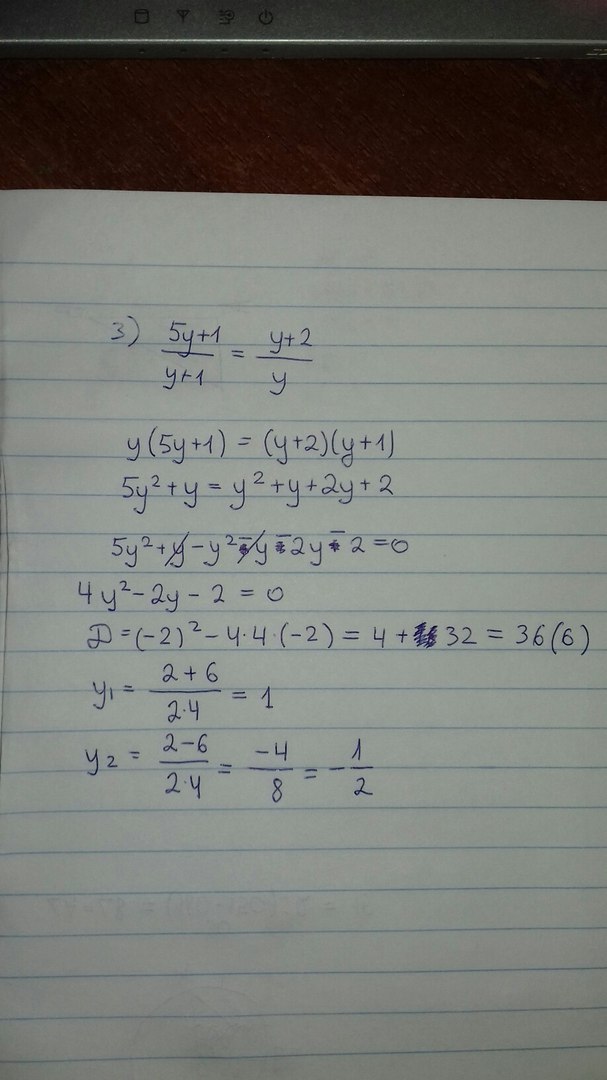 3) (5y+1)/(y+1) = (y+2)/y
y(5y+1) = (y+2)(y+1)
5y² + y = y² + y + 2y + 2
5y² + y - y² - y - 2y - 2 = 0
4y² - 2y - 2 = 0
D = (-2)² - 4·4·(-2) = 4 + 32 = 36(6)
y₁ = (2+6)/(2·4) = 1
y₂ = (2-6)/(2·4) = -4/8 = -1/2